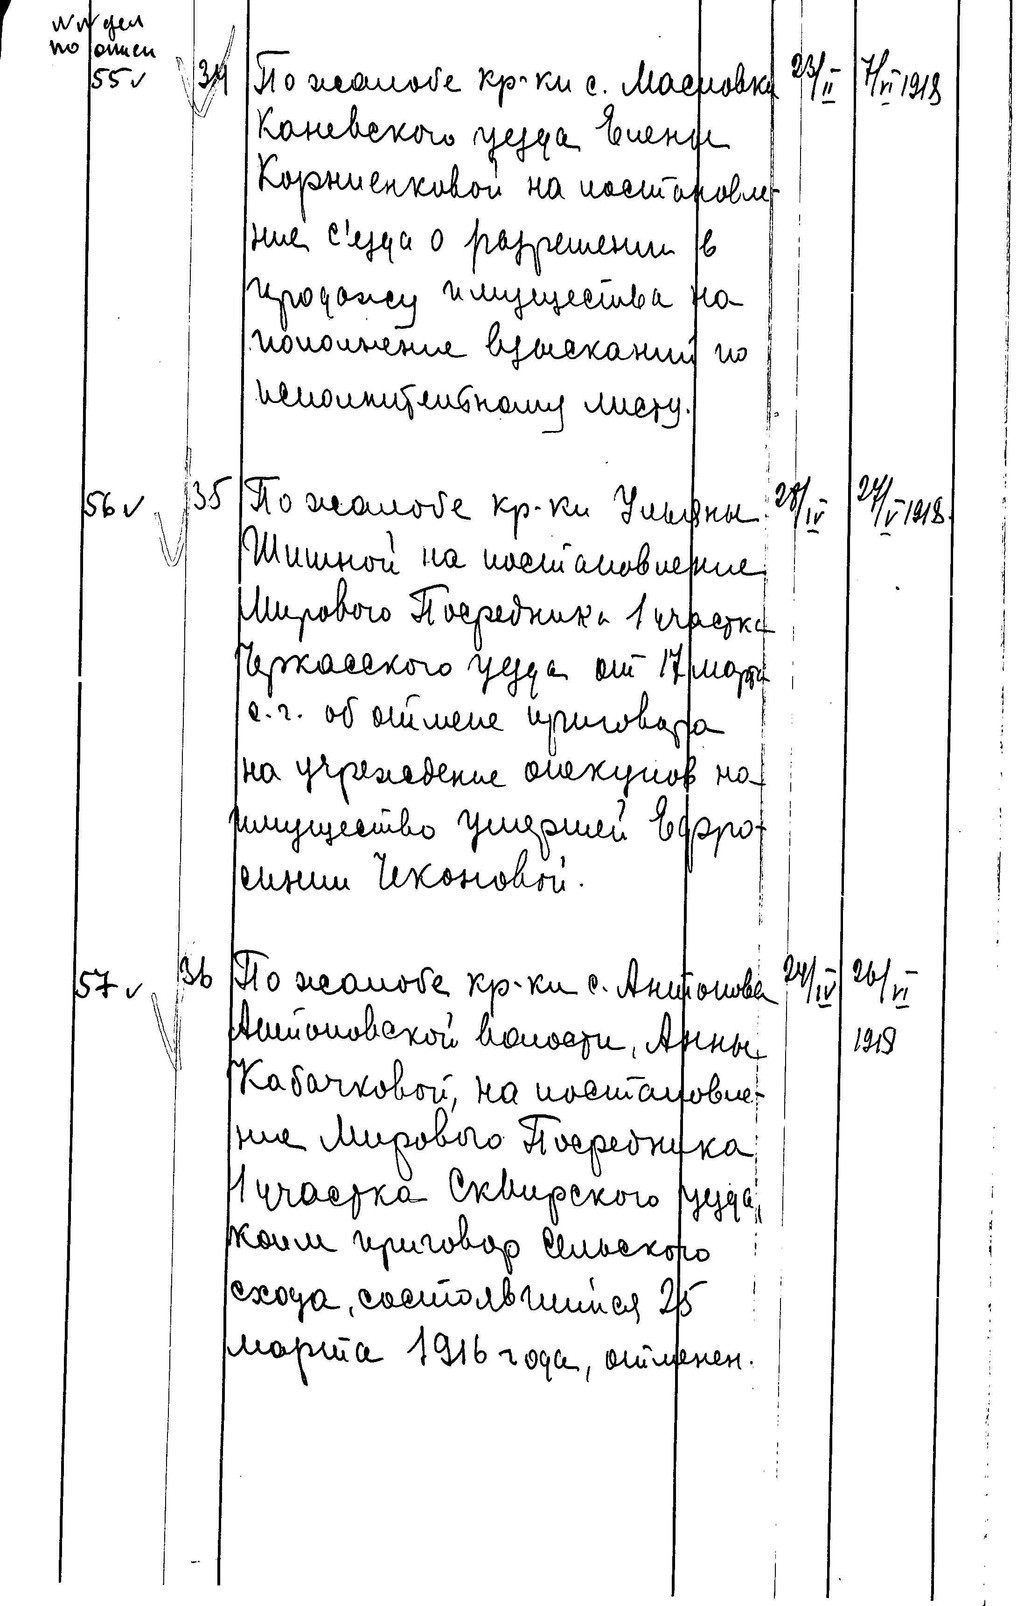 NN дел
по описи
55 v 34 По жалобе кр-ки с. Масловки 23/II 7/VI 1918
Каневского уезда Елены
Корниенковой на постановле-
ние с'езда о разрешении в
продажу имущества на
пополнение взысканий по
исполнительному листу.
56 v 35 По жалобе кр-ки Ульяны 28/IV 27/V 1918.
Шишной на постановление
Мирового Посредника 1 участка
Черкасского уезда от 17 марта
с.г. об отмене приговора
на учреждение опекунов на
имущество умершей Ефро-
синии Чеконовой.
57 v 36 По жалобе кр-ки с. Антонова 24/IV 26/VI
Антоновской волости, Анны 1918
Кабачковой, на постановле-
ние Мирового Посредника
1 участка Сквирского уезда,
коим приговор сельского
схода, состоявшийся 25
марта 1916 года, отменен.